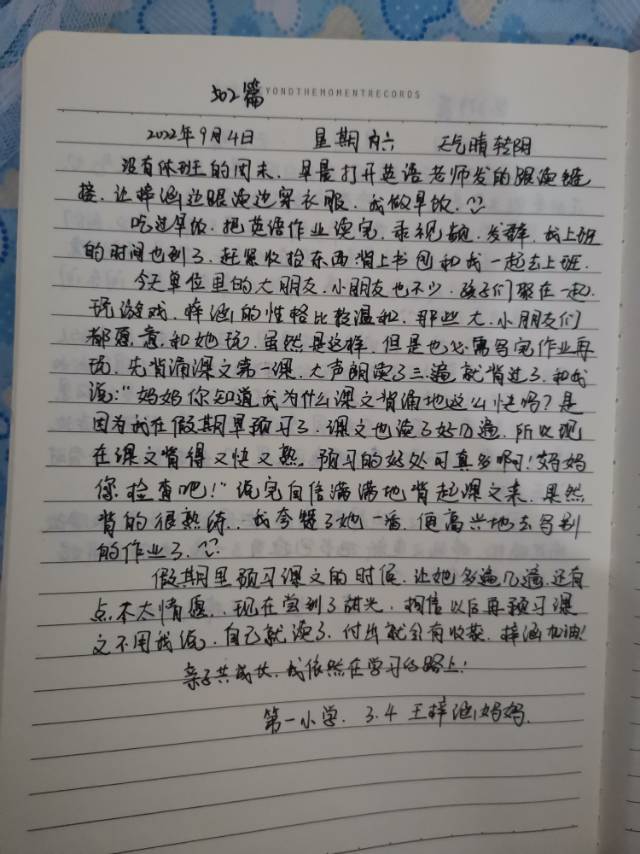 302篇 YONDTHEMOMENTRECORDS
2022年9月4日 星期六 天气晴转阴
没有休班的周末，早晨打开英语老师发的跟读链
接，让梓涵边跟读边穿衣服，我做早饭。
吃过早饭，把英语作业读完，录视频，发群，我上班
的时间也到了，赶紧收拾东西背上书包和我一起去上班.
今天单位里的大朋友、小朋友也不少，孩子们聚在一起
玩游戏，梓涵的性格比较温和，那些大、小朋友们
都愿意和她玩，虽然是这样，但是也必需写完作业再
玩，先背诵课文第一课，大声朗读了三遍就背过了，和我
说："妈妈你知道我为什么课文背诵地这么快吗？是
因为我在假期里预习了，课文也读了好几遍，所以现
在课文背得又快又熟，预习的好处可真多啊！妈妈
你检查吧！"说完自信满满地背起课文来，果然
背的很熟练，我夸赞了她一番，便高兴地去写别
的作业了.
假期里预习课文的时候，让她多读几遍，还有
点不太情愿，现在尝到了甜头，相信以后再预习课
文不用我说，自己就读了，付出就会有收获，梓涵加油！
亲子共成长，我依然在学习的路上！
第一小学. 3.4 王梓涵妈妈.